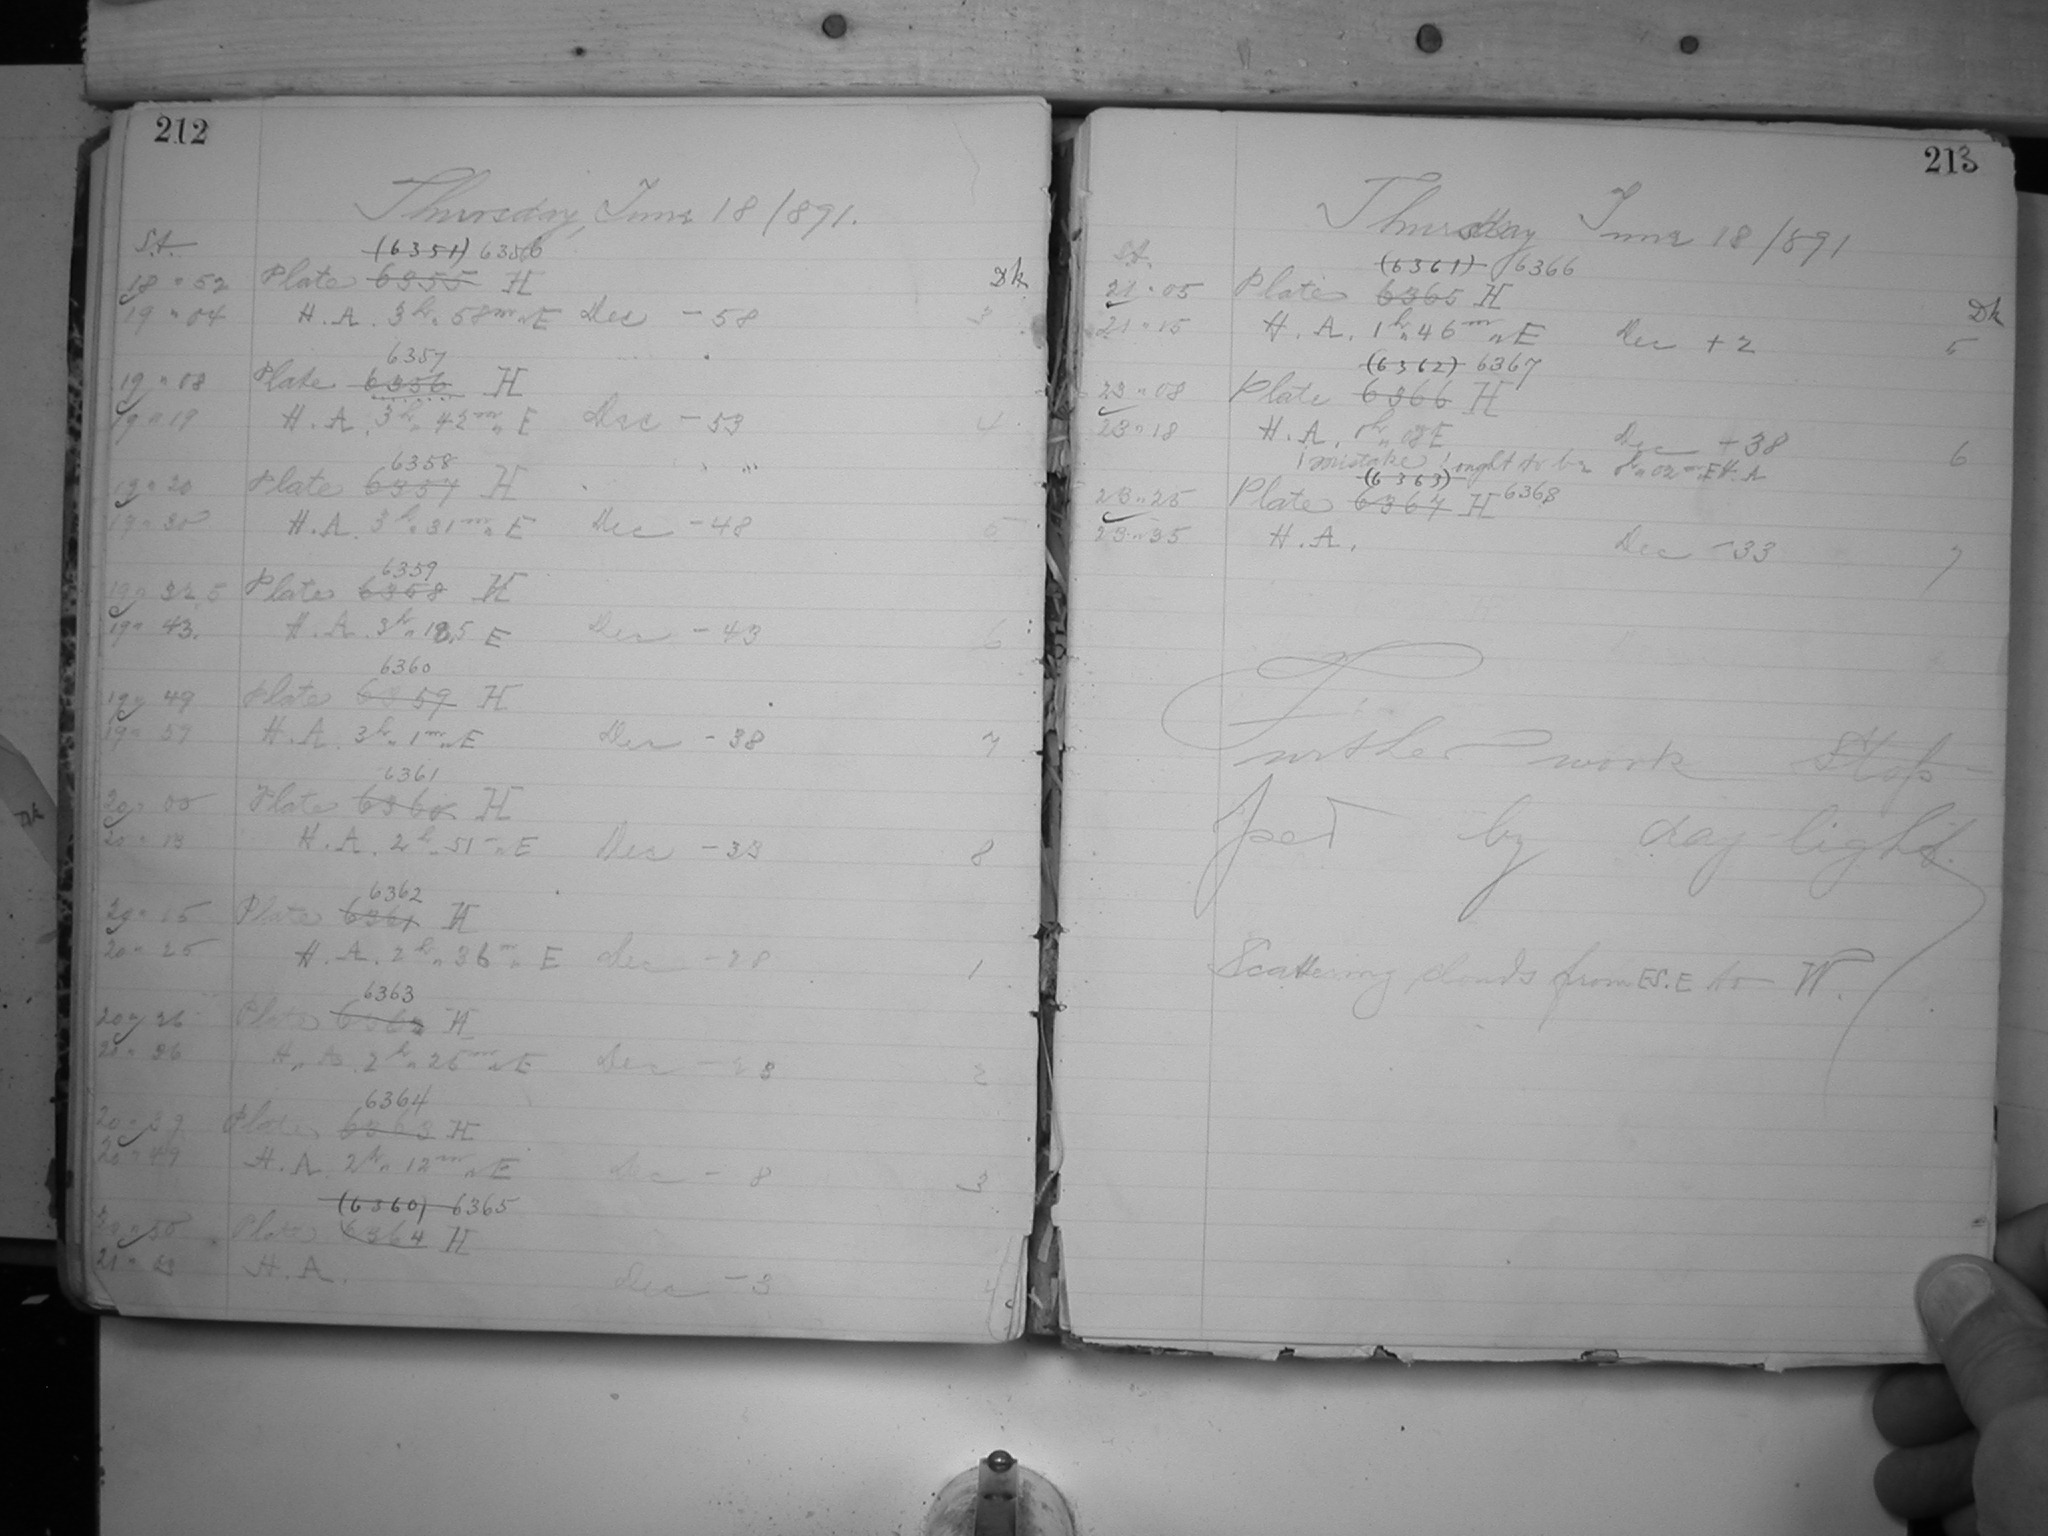 212
Thursday, June 18/891.
S.t.
(6351) 6356
18 " 52 Plate 6355 H Dk
19 " 04 H.A. 3h " 58m " E Dec - 58 3
6357
19 " 08 Plate 6356 H
19 " 19 H.A. 3h " 42m " E Dec - 53 4
6358
19 " 20 Plate 6357 H
19 " 30 H.A. 3h " 31m " E Dec - 48 5
6359
19 " 32.5 Plate 6358 H
19 " 43. H.A. 3h " 18.5 E Dec - 43 6
6360
19 " 49 Plate 6359 H
19 " 57 H.A. 3h " 1m " E Dec - 38 7
6361
20 " 00 Plate 6360 H
20 " 13 H.A. 2h " 51m " E Dec - 33 8
6362
20 " 15 Plate 6361 H
20 " 25 H.A. 2h " 36m " E Dec - 28 1
6363
20 " 26 Plate 6362 H
20 " 36 H.A. 2h " 25m " E Dec - 23 2
6364
20 " 39 Plate 6363 H
20 " 49 H.A. 2h " 12m " E Dec - 8 3
(6360) 6365
20 " 50 Plate 6364 H
21 " 03 H.A. Dec - 3 4
213
Thursday June 18/891
S.t.
(6361) 6366
21 " 05 Plate 6365 H Dk
21 " 15 H.A. 1h " 46m " E Dec + 2 5
(6362) 6367
23 " 08 Plate 6366 H
23 " 18 H.A. 0h " 08 E Dec + 38 6
mistake! ought to be 0h " 02m " E H.A
(6363)
23 " 25 Plate 6367 H 6368
23 " 35 H.A. Dec - 33 7
Further work Stop-
ped by day-light.
Scattering clouds from ES.E to W.